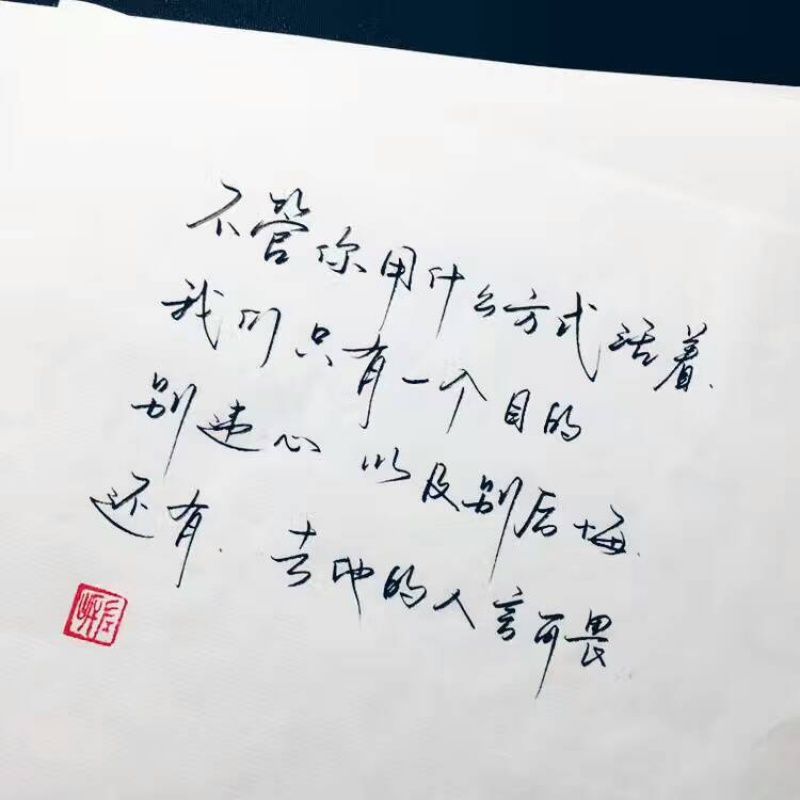 不管你用什么方式活着.
我们只有一个目的
别违心 以及别后悔.
还有. 去他的人言可畏